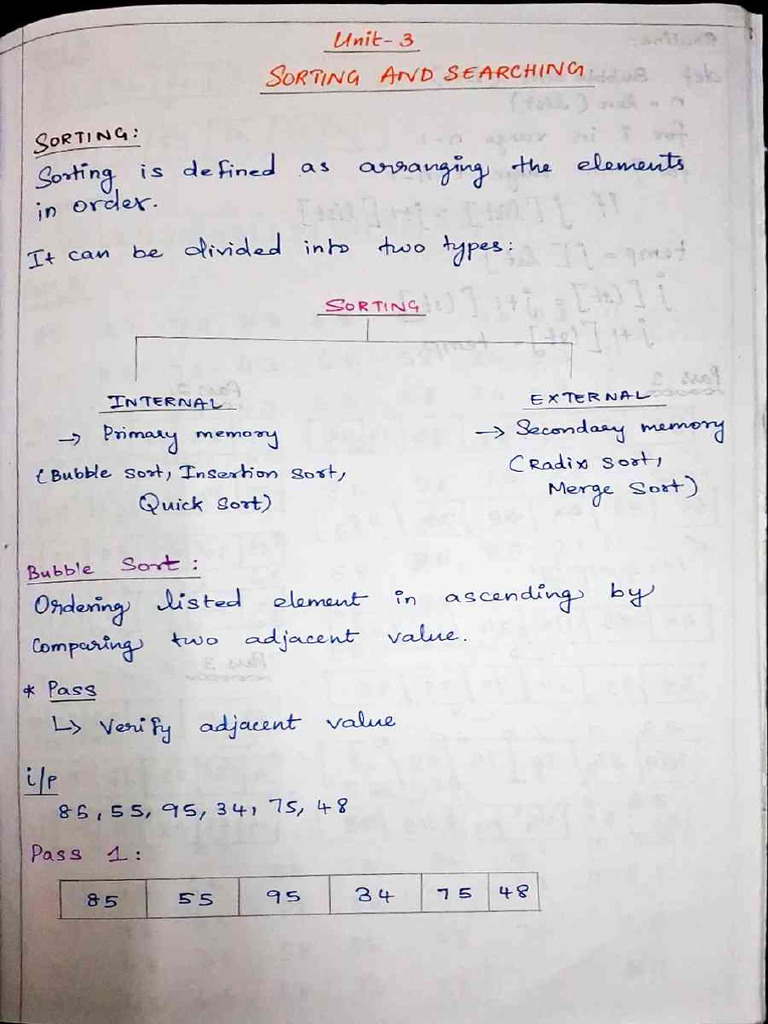 Unit-3
SORTING AND SEARCHING
SORTING:
Sorting is defined as arranging the elements
in order.
It can be divided into two types:
SORTING
INTERNAL
→ Primary memory
(Bubble sort, Insertion sort,
Quick sort)
EXTERNAL
→ Secondary memory
(Radix sort,
Merge Sort)
Bubble Sort:
Ordering listed element in ascending by
comparing two adjacent value.
* Pass
↳ Verify adjacent value
i/p
85, 55, 95, 34, 75, 48
Pass 1:
85 55 95 34 75 48